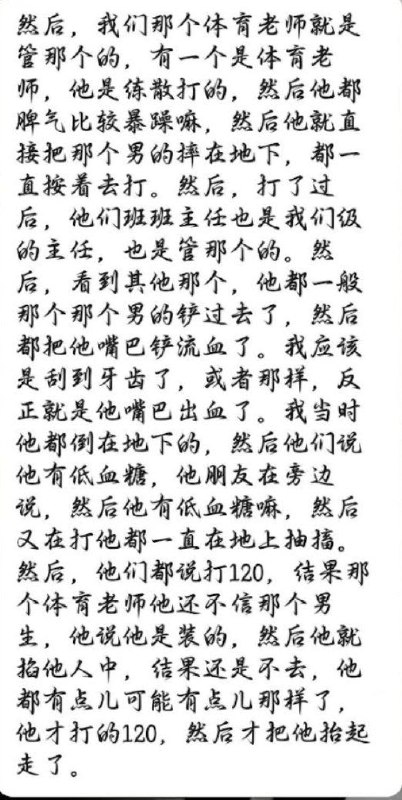 然后，我们那个体育老师就是
管那个的，有一个是体育老
师，他是练散打的，然后他都
脾气比较暴躁嘛，然后他就直
接把那个男的摔在地下，都一
直按着去打。然后，打了过
后，他们班班主任也是我们级
的主任，也是管那个的。然
后，看到其他那个，他都一般
那个那个男的铲过去了，然后
都把他嘴巴铲流血了。我应该
是刮到牙齿了，或者那样，反
正就是他嘴巴出血了。我当时
他都倒在地下的，然后他们说
他有低血糖，他朋友在旁边
说，然后他有低血糖嘛，然后
又在打他都一直在地上抽搐。
然后，他们都说打120，结果那
个体育老师他还不信那个男
生，他说他是装的，然后他就
掐他人中，结果还是不去，他
都有点儿可能有点儿那样了，
他才打的120，然后才把他抬起
走了。